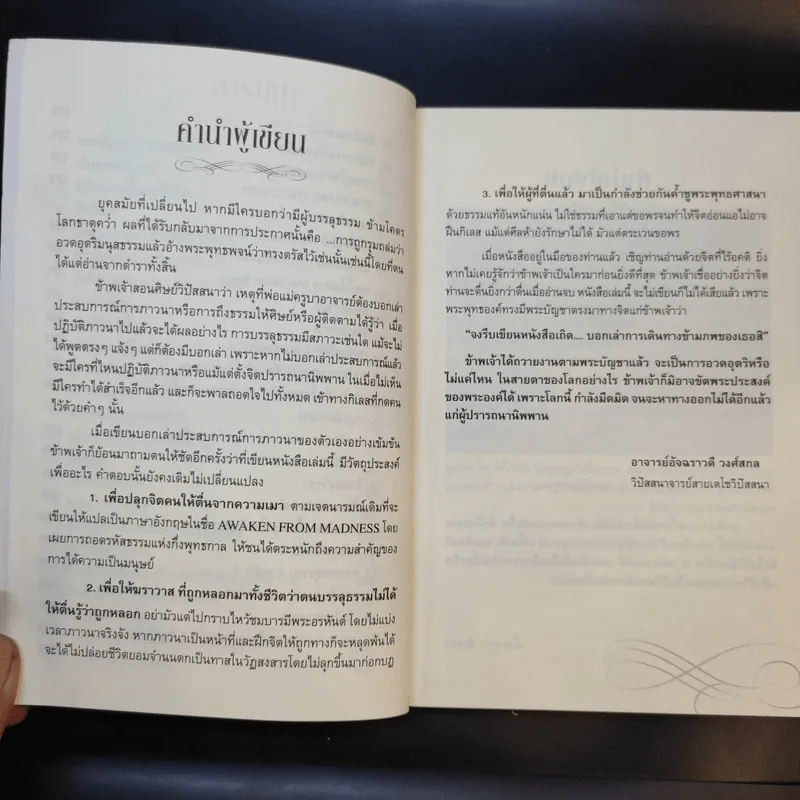 คำนำผู้เขียน
ยุคสมัยที่เปลี่ยนไป หากมีใครบอกว่ามีผู้บรรลุธรรม ข้ามโคตร
โลกธาตุคว่ำ ผลที่ได้รับกลับมาจากการประกาศนั้นคือ ...การถูกรุมถล่มว่า
อวดอุตริมนุสธรรมแล้วอ้างพระพุทธพจน์ว่าทรงตรัสไว้เช่นนั้นเช่นนี้โดยที่ตน
ได้แต่อ่านจากตำราทั้งสิ้น
ข้าพเจ้าสอนศิษย์วิปัสสนาว่า เหตุที่พ่อแม่ครูบาอาจารย์ต้องบอกเล่า
ประสบการณ์การภาวนาหรือการถึงธรรมให้ศิษย์หรือผู้ติดตามได้รู้ว่า เมื่อ
ปฏิบัติภาวนาไปแล้วจะได้ผลอย่างไร การบรรลุธรรมมีสภาวะเช่นใด แม้จะไม่
ได้พูดตรงๆ แจ้งๆ แต่ก็ต้องมีบอกเล่า เพราะหากไม่บอกเล่าประสบการณ์แล้ว
จะมีใครที่ไหนปฏิบัติภาวนาหรือแม้แต่ตั้งจิตปรารถนานิพพาน ในเมื่อไม่เห็น
มีใครทำได้สำเร็จอีกแล้ว และก็จะพาลถอดใจไปทั้งหมด เข้าทางกิเลสที่กดคน
ไว้ด้วยคำๆ นั้น
เมื่อเขียนบอกเล่าประสบการณ์การภาวนาของตัวเองอย่างเข้มข้น
ข้าพเจ้าก็ย้อนมาถามตนให้ชัดอีกครั้งว่าที่เขียนหนังสือเล่มนี้ มีวัตถุประสงค์
เพื่ออะไร คำตอบนั้นยังคงเดิมไม่เปลี่ยนแปลง
1. เพื่อปลุกจิตคนให้ตื่นจากความเมา ตามเจตนารมณ์เดิมที่จะ
เขียนให้แปลเป็นภาษาอังกฤษในชื่อ AWAKEN FROM MADNESS โดย
เผยการถอดรหัสธรรมแห่งกึ่งพุทธกาล ให้ชนได้ตระหนักถึงความสำคัญของ
การได้ความเป็นมนุษย์
2. เพื่อให้ฆราวาส ที่ถูกหลอกมาทั้งชีวิตว่าตนบรรลุธรรมไม่ได้
ให้ตื่นรู้ว่าถูกหลอก อย่ามัวแต่ไปกราบไหว้ชมบารมีพระอรหันต์ โดยไม่แบ่ง
เวลาภาวนาจริงจัง หากภาวนาเป็นหน้าที่และฝึกจิตให้ถูกทางก็จะหลุดพ้นได้
จะได้ไม่ปล่อยชีวิตยอมจำนนตกเป็นทาสในวัฏสงสารโดยไม่ลุกขึ้นมาก่อกบฏ
3. เพื่อให้ผู้ที่ตื่นแล้ว มาเป็นกำลังช่วยกันค้ำชูพระพุทธศาสนา
ด้วยธรรมแท้อันหนักแน่น ไม่ใช่ธรรมที่เอาแต่ขอพรจนทำให้จิตอ่อนแอไม่อาจ
ฝืนกิเลส แม้แต่ศีลห้ายังรักษาไม่ได้ มัวแต่ตระเวนขอพร
เมื่อหนังสืออยู่ในมือของท่านแล้ว เชิญท่านอ่านด้วยจิตที่ไร้อคติ ยิ่ง
หากไม่เคยรู้จักว่าข้าพเจ้าเป็นใครมาก่อนยิ่งดีที่สุด ข้าพเจ้าเชื่ออย่างยิ่งว่าจิต
ท่านจะตื่นยิ่งกว่าตื่นเมื่ออ่านจบ หนังสือเล่มนี้ จะไม่เขียนก็ไม่ได้เสียแล้ว เพราะ
พระพุทธองค์ทรงมีพระบัญชาตรงมาทางจิตแก่ข้าพเจ้าว่า
“จงรีบเขียนหนังสือเถิด.... บอกเล่าการเดินทางข้ามภพของเธอสิ”
ข้าพเจ้าได้ถวายงานตามพระบัญชาแล้ว จะเป็นการอวดอุตริหรือ
ไม่แค่ไหน ในสายตาของโลกอย่างไร ข้าพเจ้าก็มิอาจขัดพระประสงค์
ของพระองค์ได้ เพราะโลกนี้ กำลังมืดมิด จนจะหาทางออกไม่ได้อีกแล้ว
แก่ผู้ปรารถนานิพพาน
อาจารย์อัจฉราวดี วงศ์สกล
วิปัสสนาจารย์สายเตโชวิปัสสนา